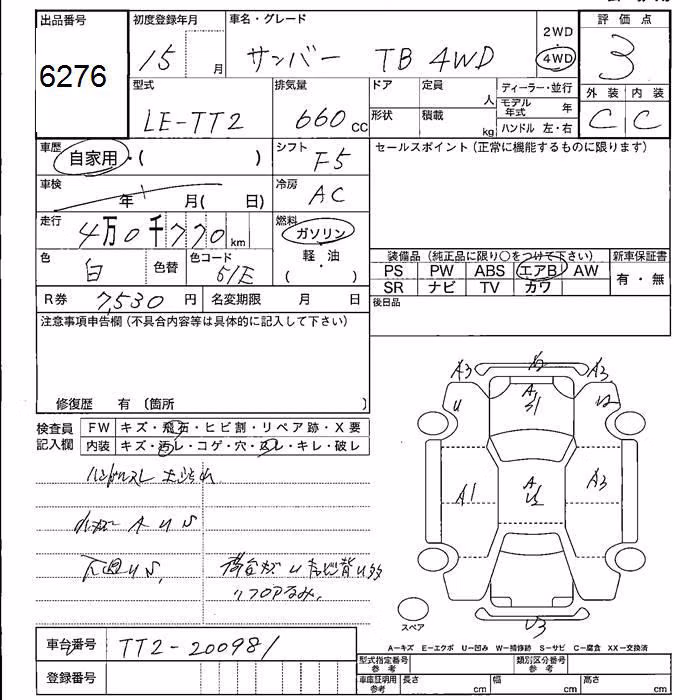 出品番号 初度登録年月 車名・グレード 2WD 評価点
6276 15 月 サンバー TB 4WD 4WD 3
型式 排気量 ドア 定員 人 ディーラー・並行 外装 内装
LE-TT2 660 cc 形状 積載 kg モデル年式 年 C C
ハンドル 左・右
車歴 自家用・( ) シフト F5 セールスポイント(正常に機能するものに限ります)
車検 年 月( 日) 冷房 AC
走行 4万0千770 km 燃料 ガソリン
色 白 色替 色コード 51E 軽・油 ( )
装備品(純正品に限り○をつけて下さい) 新車保証書
PS PW ABS エアB AW 有・無
SR ナビ TV カワ
R券 7,530 円 名変期限 月 日 後日品
注意事項申告欄(不具合内容等は具体的に記入して下さい)
修復歴 有 〔箇所 〕
検査員 FW キズ・飛石・ヒビ割・リペア跡・X要
記入欄 内装 キズ・汚レ・コゲ・穴・スレ・キレ・破レ
ハンドルスレ
A U S
下廻U S
A3 A2 A3
U A U2
S1
A1 A A3
US
U3
スペア
A-キズ E-エクボ U-凹み W-補修跡 S-サビ C-腐食 XX-交換済
車台番号 TT2-200981
登録番号
型式指定番号 参考 類別区分番号 参考
車庫証明用 参考 長さ cm 幅 cm 高さ cm